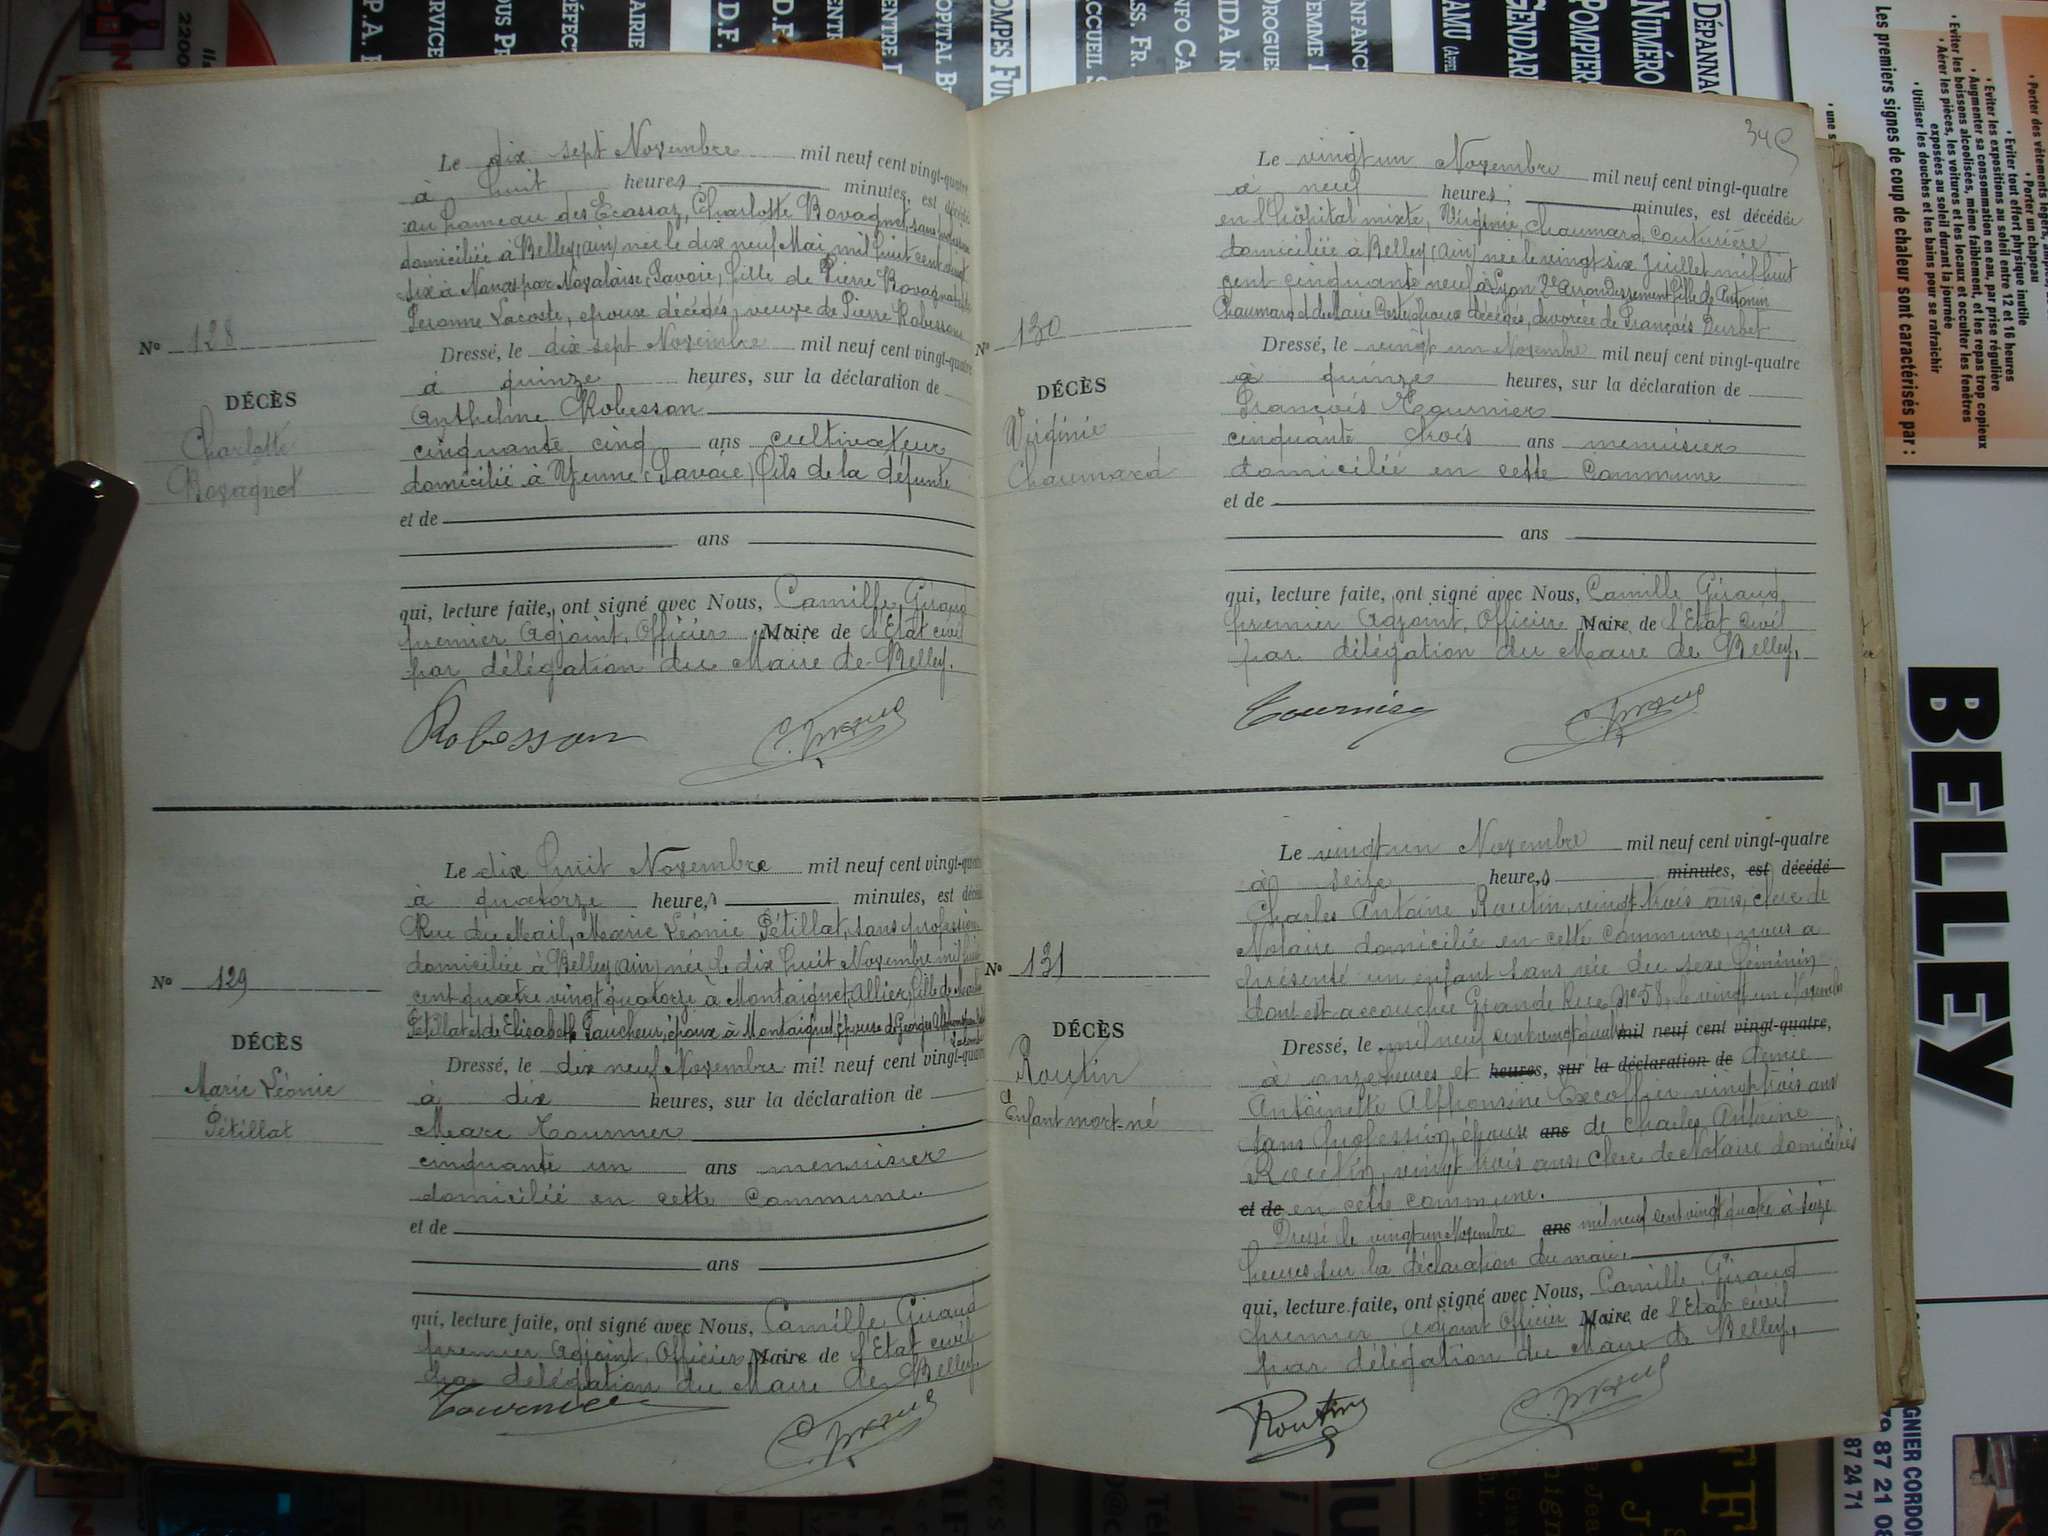 Le dix sept Novembre mil neuf cent vingt-quatre
à huit heures minutes, est décédée
au hameau des Ecassaz, Charlotte Rovagnet, sans profession
domiciliée à Belley (Ain) née le dix neuf Mai mil huit cent
dix à Nances par Novalaise, Savoie, fille de Pierre Rovagnet
Lacoste, époux décédés, veuve de Pierre Robesson
N° 128
Dressé, le dix sept Novembre mil neuf cent vingt-quatre
à quinze heures, sur la déclaration de
DÉCÈS
Anthelme Robesson
Charlotte
cinquante cinq ans cultivateur
Rovagnet
domicilié à Yenne (Savoie) fils de la défunte
et de
ans
qui, lecture faite, ont signé avec Nous, Camille Giraud
premier Adjoint, Officier Maire de l'Etat civil
par délégation du Maire de Belley.
Robesson
C. Giraud
Le dix huit Novembre mil neuf cent vingt-quatre
à quatorze heures minutes, est décédée
Rue du Mail, Marie Léonie Pétillat, sans profession
domiciliée à Belley (Ain) née le dix huit Novembre mil huit
N° 129
cent quatre vingt quatorze à Montaiguet, Allier, fille de
Pétillat et de Elisabeth Gaucheur, époux à Montaiguet, épouse de Georges
DÉCÈS
Dressé, le dix neuf Novembre mil neuf cent vingt-quatre
Marie Léonie
à dix heures, sur la déclaration de
Pétillat
Marc Tournier
cinquante un ans menuisier
domicilié en cette commune.
et de
ans
qui, lecture faite, ont signé avec Nous, Camille Giraud
premier Adjoint, Officier Maire de l'Etat civil
par délégation du Maire de Belley
Tournier
C. Giraud
345
Le vingt un Novembre mil neuf cent vingt-quatre
à neuf heures, minutes, est décédée
en l'hôpital mixte, Virginie, Chaumard, couturière
domiciliée à Belley (Ain) née le vingt six Juillet mil huit
cent cinquante neuf à Lyon 2e Arrondissement fille de Antonin
Chaumard et de Marie Coste époux décédés, divorcée de François Burbet
N° 130
Dressé, le vingt un Novembre mil neuf cent vingt-quatre
à quinze heures, sur la déclaration de
DÉCÈS
François Tournier
Virginie
cinquante trois ans menuisier
Chaumard
domicilié en cette Commune
et de
ans
qui, lecture faite, ont signé avec Nous, Camille Giraud
premier Adjoint, Officier Maire de l'Etat civil
par délégation du Maire de Belley.
Tournier
C. Giraud
Le vingt un Novembre mil neuf cent vingt-quatre
à seize heures minutes, est décédé
Charles Antoine Routin, vingt trois ans, clerc de
Notaire domicilié en cette commune, nous a
présenté un enfant sans vie du sexe féminin
N° 131
dont est accouchée Grande Rue N° 58, le vingt un Novembre
DÉCÈS
Dressé, le mil neuf cent vingt quatre mil neuf cent vingt-quatre,
Routin
à onze heures et heures, sur la déclaration de demie
Enfant mort-né
Antoinette Alphonsine Excoffier vingt trois ans
sans profession, épouse ans de Charles Antoine
Routin, vingt trois ans, clerc de Notaire domiciliés
et de en cette commune.
Dressé le vingt un Novembre ans mil neuf cent vingt quatre à seize
heures sur la déclaration du mari
qui, lecture faite, ont signé avec Nous, Camille Giraud
premier Adjoint Officier Maire de l'Etat civil
par délégation du Maire de Belley,
Routin
C. Giraud
DÉPANNA
NUMÉRO
POMPIER
GENDAR
SAMU
Les premiers signes de coup de chaleur sont caractérisés par :
• Porter des vêtements légers,
• Porter un chapeau
• Eviter tout effort physique inutile
• Eviter les expositions au soleil entre 12 et 16 heures
• Augmenter sa consommation en eau, par prise régulière
• Eviter les boissons alcoolisées, même faiblement, et les repas trop copieux
• Aérer les pièces, les voitures et les locaux et occulter les fenêtres
exposées au soleil durant la journée
• Utiliser les douches et les bains pour se rafraichir
BELLEY
GNIER CORDO
79 87 21 08
87 24 71